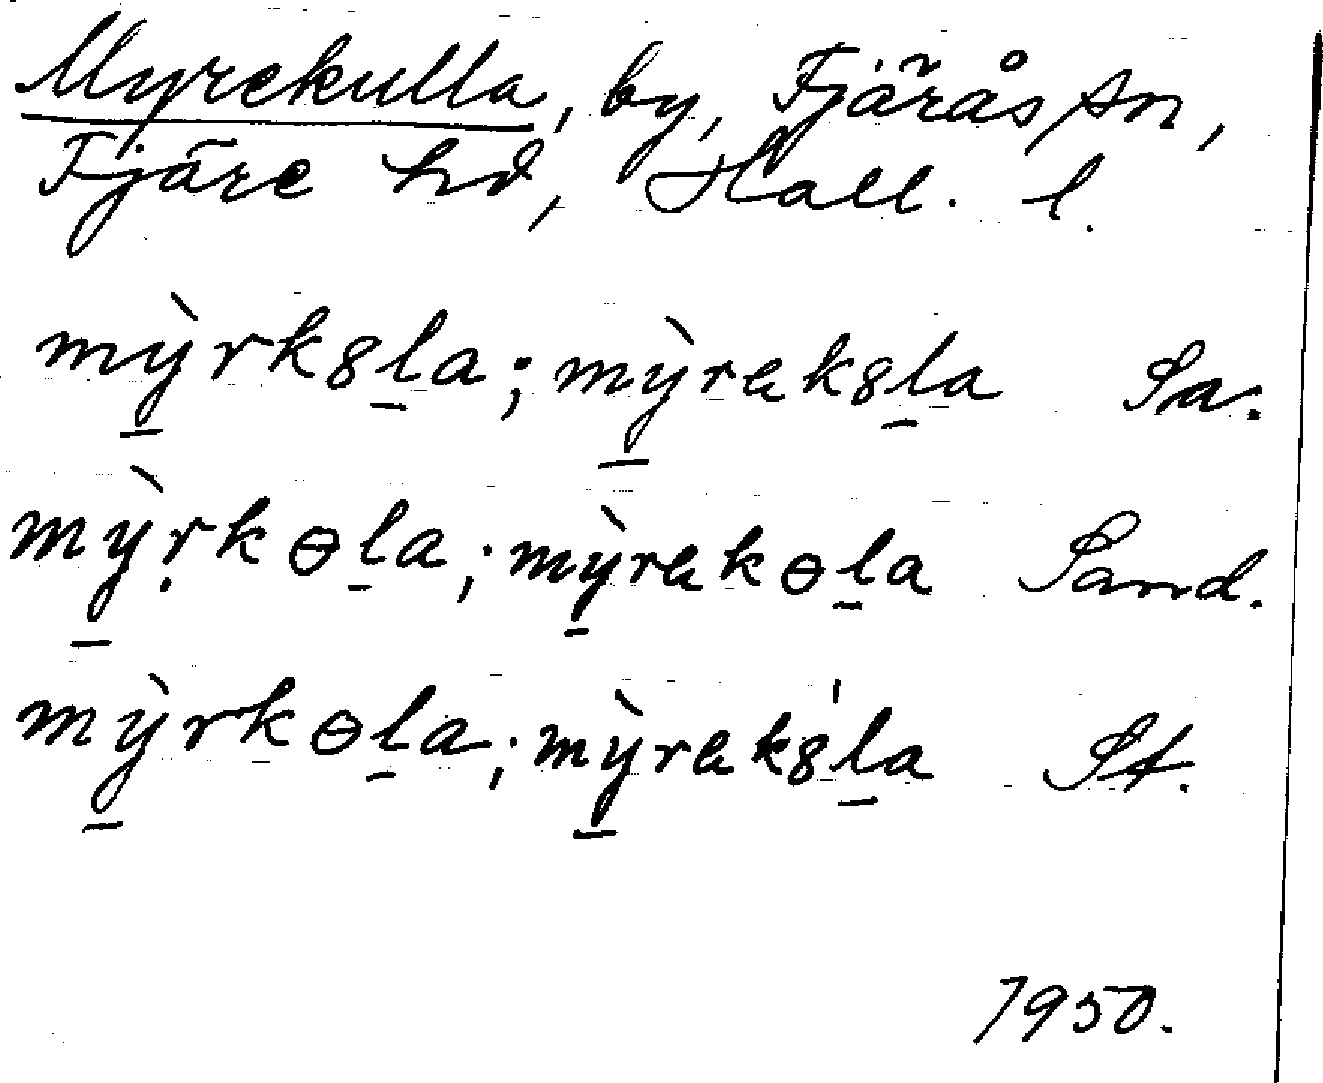 Myrekulla, by, Fjärås sn,
Fjäre hd, Hall. l.
mỳ̱rk8ḻa; mỳ̱rək8ḻa Sa.
mỳ̱ṛkɵḻa; mỳ̱rəkɵḻa Sand.
mỳ̱rkɵḻa; mỳ̱rək8̍ḻa St.
1950.